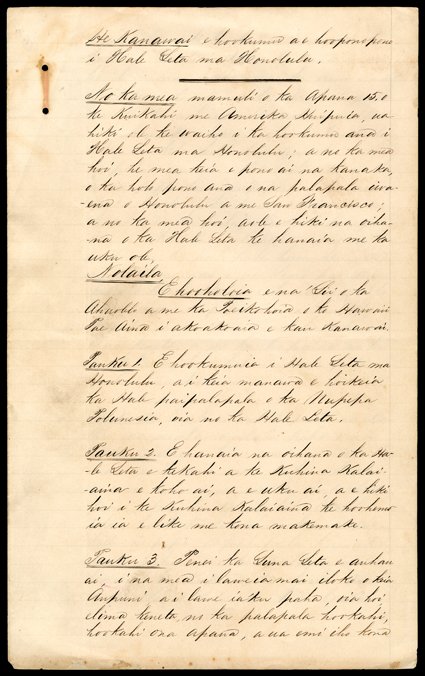 He Kanawai e hookumu a e hooponopono
i Hale Leta ma Honolulu.
No ka mea mamuli o ka Apana 15. o
ke Kuikahi me Amerika Huipuia, ua
hiki ole ke waiho i ka hookumu ana i
Hale Leta ma Honolulu; a no ka mea
hoi, he mea keia e pono ai na kanaka,
o ka holo pono ana o na palapala iwa-
ena o Honolulu a me San Francisco;
a no ka mea hoi, aole e hiki na oiha-
na o ka Hale Leta ke hanaia me ka
uku ole,
Nolaila,
E hooholoia e na 'Lii o ka
Ahaolelo a me ka Poeikohoia o ko Hawaii
Pae Aina i akoakoaia e kau Kanawai.
Pauku 1. E hookumuia i Hale Leta ma
Honolulu, a i keia manawa e hoikeia
ka Hale paipalapala o ka Nupepa
Polunesia, oia no ka Hale Leta.
Pauku 2. E hanaia na oihana o ka Ha-
le Leta e kekahi a ke Kuhina Kalai-
aina e koho ai, a e uku ai, a e hiki
hoi i ke Kuhina Kalaiaina ke hoohemo
ia ia e like me kona makemake.
Pauku 3. Penei ka Luna Leta e auhau
ai, i na mea i laweia mai iloko o keia
Aupuni, a i lawe iaku paha, oia hoi
elima keneta, no ka palapala hookahi,
hookahi ona apana, a ua emi iho kona